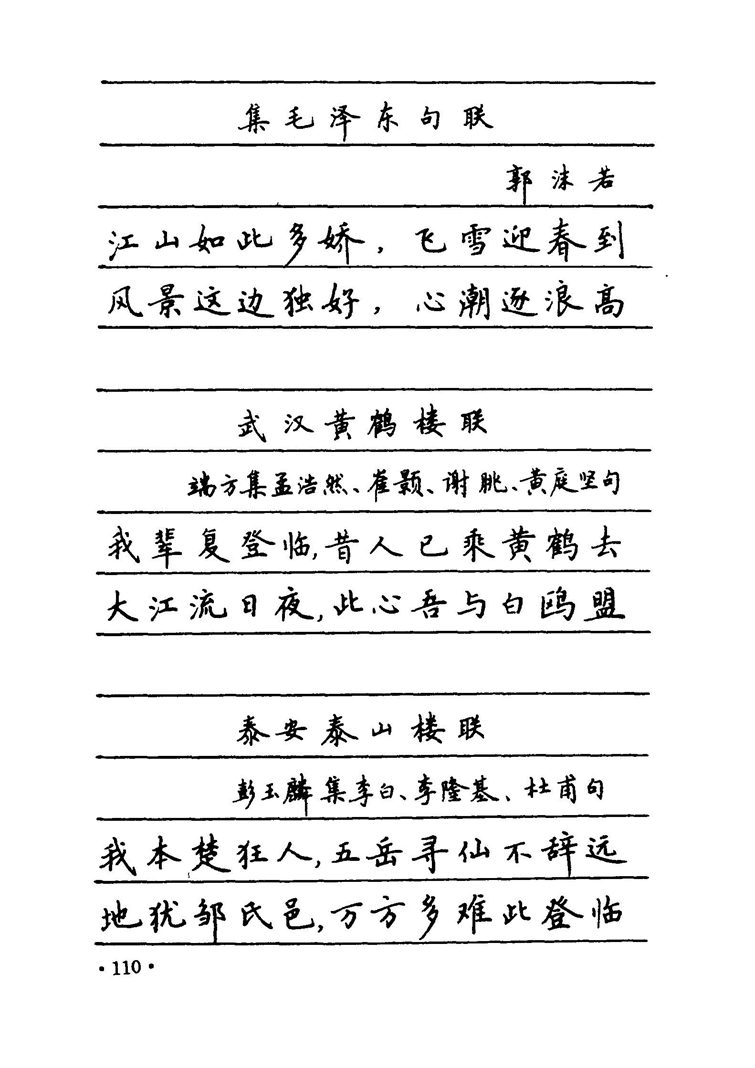 集毛泽东句联
郭沫若
江山如此多娇，飞雪迎春到
风景这边独好，心潮逐浪高
武汉黄鹤楼联
端方集孟浩然、崔颢、谢朓、黄庭坚句
我辈复登临，昔人已乘黄鹤去
大江流日夜，此心吾与白鸥盟
泰安泰山楼联
彭玉麟集李白、李隆基、杜甫句
我本楚狂人，五岳寻仙不辞远
地犹邹氏邑，万方多难此登临
·110·